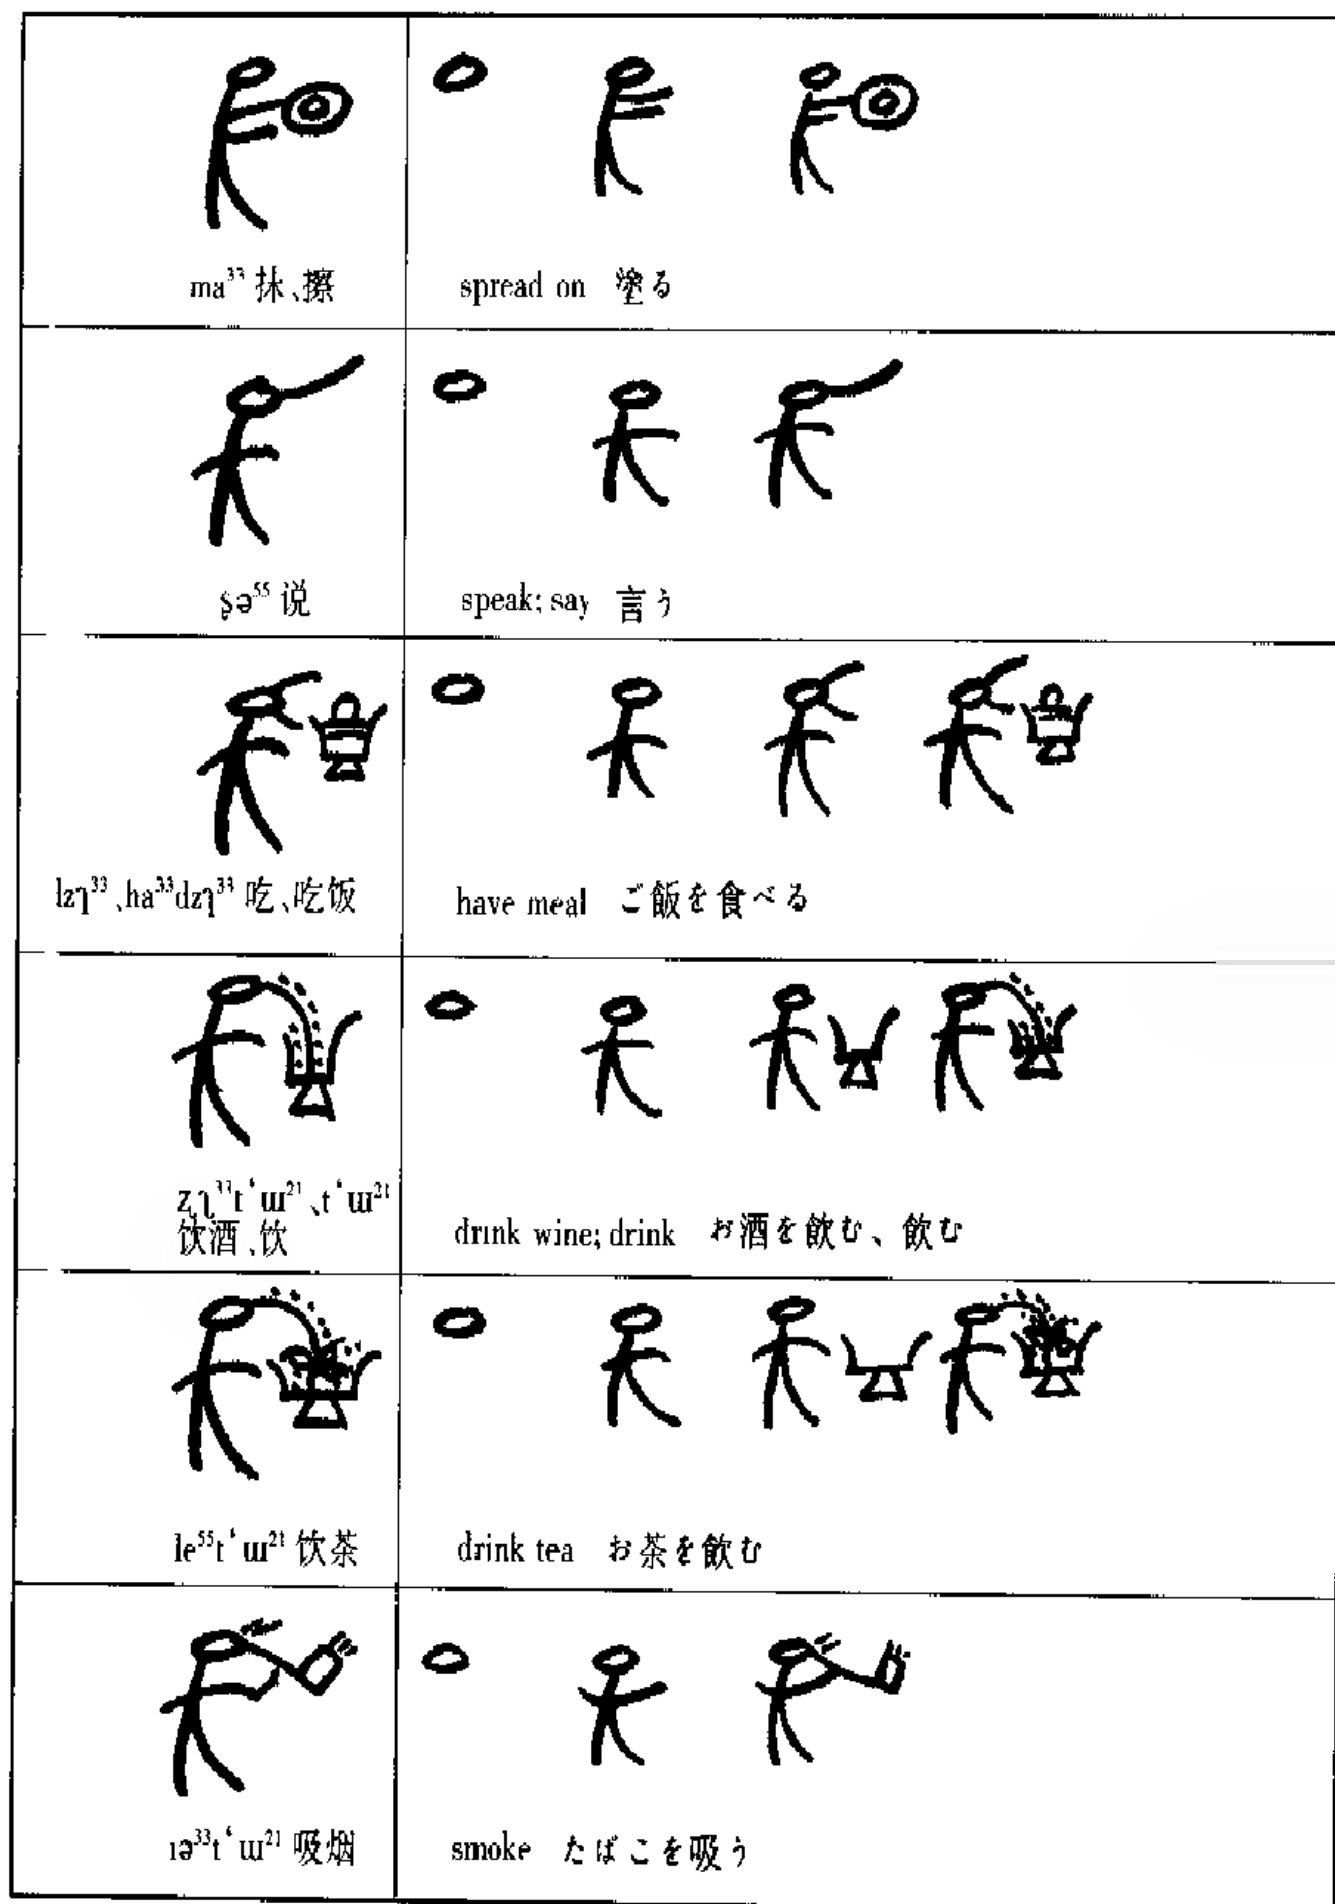 ma³³ 抹、擦
spread on 塗る
ʂə⁵⁵ 说
speak; say 言う
dzɿ³³、ha³³dzɿ³³ 吃、吃饭
have meal ご飯を食べる
ʐɿ³³t‘ɯ²¹、t‘ɯ²¹
饮酒、饮
drink wine; drink お酒を飲む、飲む
le⁵⁵t‘ɯ²¹ 饮茶
drink tea お茶を飲む
t‘ɯ²¹ 吸烟
smoke たばこを吸う